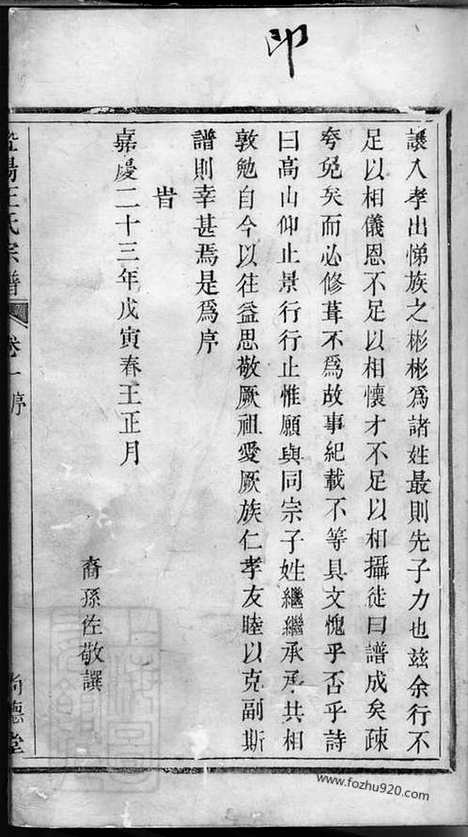 卬
讓入孝出悌族之彬彬爲諸姓最則先子力也兹余行不
足以相儀恩不足以相懷才不足以相攝徒曰譜成矣疎
夸免矣而必修葺不爲故事紀載不等具文愧乎否乎詩
曰高山仰止景行行止惟願與同宗子姓繼繼承承共相
敦勉自今以往益思敬厥祖愛厥族仁孝友睦以克副斯
譜則幸甚焉是爲序
旹
嘉慶二十三年戊寅春王正月
裔孫佐敬譔
暨陽王氏宗譜 卷一 序 尚德堂
www.fozhu920.com